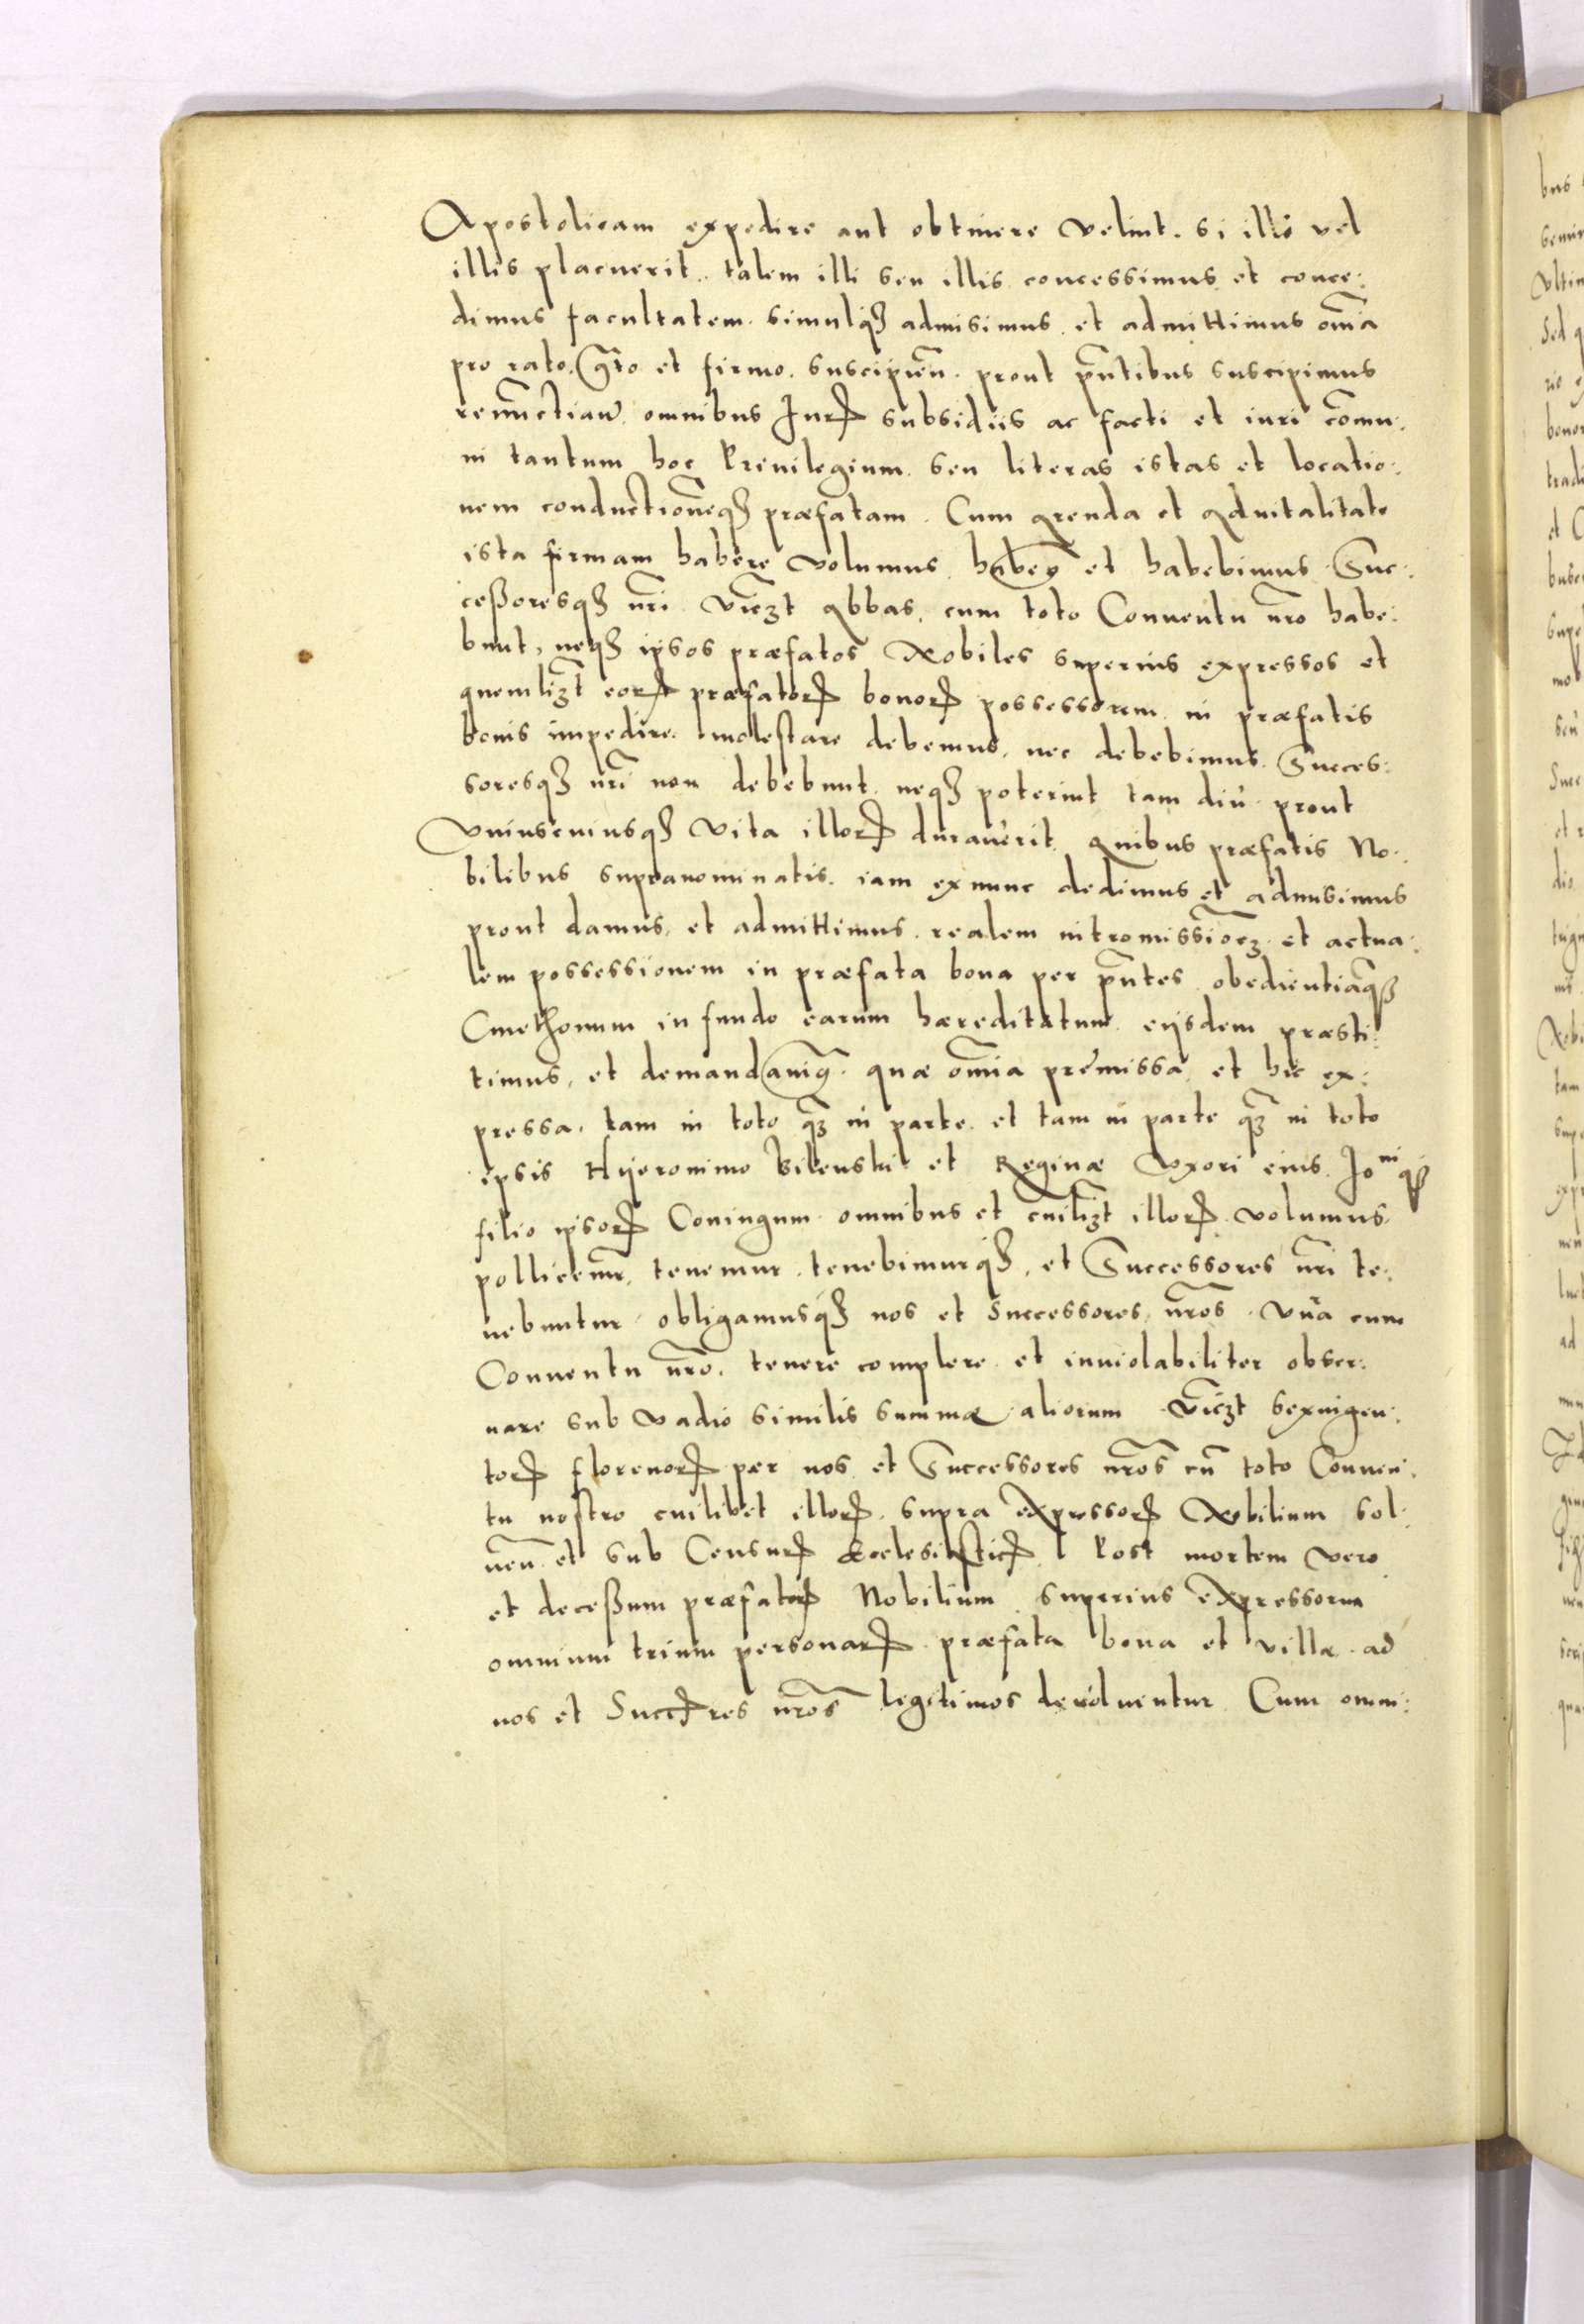 Apostolicam expedire aut obtinere velint. si illi vel
illis placuerit. talem illi seu illis concessimus et conce:
dimus facultatem. simulqꝫ admisimus. et admittimus om̃ia
pro rato, gr̃to et firmo. suscipien̄. prout pñtibus suscipimus
omnibus Jurꝝ subsidiis ac facti et iuri cõmu:
ni tantum hoc Priuilegium. seu literas istas et locatio:
nem conductionẽqꝫ præfatam. Cum arenda et aduitalitate
ista firmam habere volumus. habem9 et habebimus. Suc:
ceßoresqꝫ nr̃i vicꝫt abbas, cum toto Conuentu nr̃o habe:
bunt, neqꝫ ipsos præfatos Nobiles superius expressos et
quemlibꝫt eorꝝ præfatorꝝ bonorꝝ possessorem. in præfatis
bonis impedire. molestare debemus, nec debebimus. Succes:
soresqꝫ nr̃i non debebunt. neqꝫ poterint tam diu prout
Vniuscuiusqꝫ vita illorꝝ durauerit. quibus præfatis No:
bilibus supranominatis. iam exnunc dedimus et admisimus
prout damus, et admittimus. realem intromissiõeꝫ. et actua:
lem possessionem in præfata bona per pñtes. obedientiãqꝫ
Cmethonum in fundo earum hæreditatum. eijsdem præsti:
timus, et demandauim9. quæ om̃ia præmissa, et hic ex:
pressa, tam in toto qꝫ in parte. et tam in parte qꝫ in toto
ipsis Hijeronimo Bilenski et Reginæ Vxori eius. Joniqꝫ
filio ipsorꝝ Coniugum. omnibus et cuilibꝫt illorꝝ. volumus,
pollicemur, tenemur. tenebimurqꝫ, et Successores nr̃i te:
nebuntur. obligamusqꝫ nos et Successores nr̃os. vna cum
Conuentu nr̃o. tenere complere. et inuiolabiliter obser:
uare sub vadio similis summæ. aliorum vicꝫt sexingen:
torꝝ florenorꝝ per nos et Successores nr̃os cū toto Conuen:
tu nostro cuilibet illorꝝ. supra expressorꝝ Nobilium sol:
uen̄. et sub Censurꝝ Ecclesiasticꝝ. Post mortem vero
et deceßum præfatorꝝ Nobilium superius expressorum
omnium trium personarꝝ. præfata bona et villæ. ad
nos et Succꝝres nr̃os legitimos deuoluentur. Cum omni: